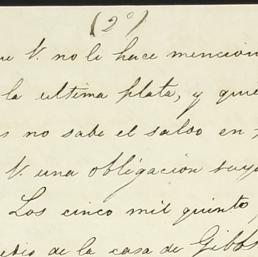 (2°)
V. no le hace mencion
la ultima plata, y
no sabe el saldo en
V. una obligacion suya
Los cinco mil quinto
de la casa de Gibbs